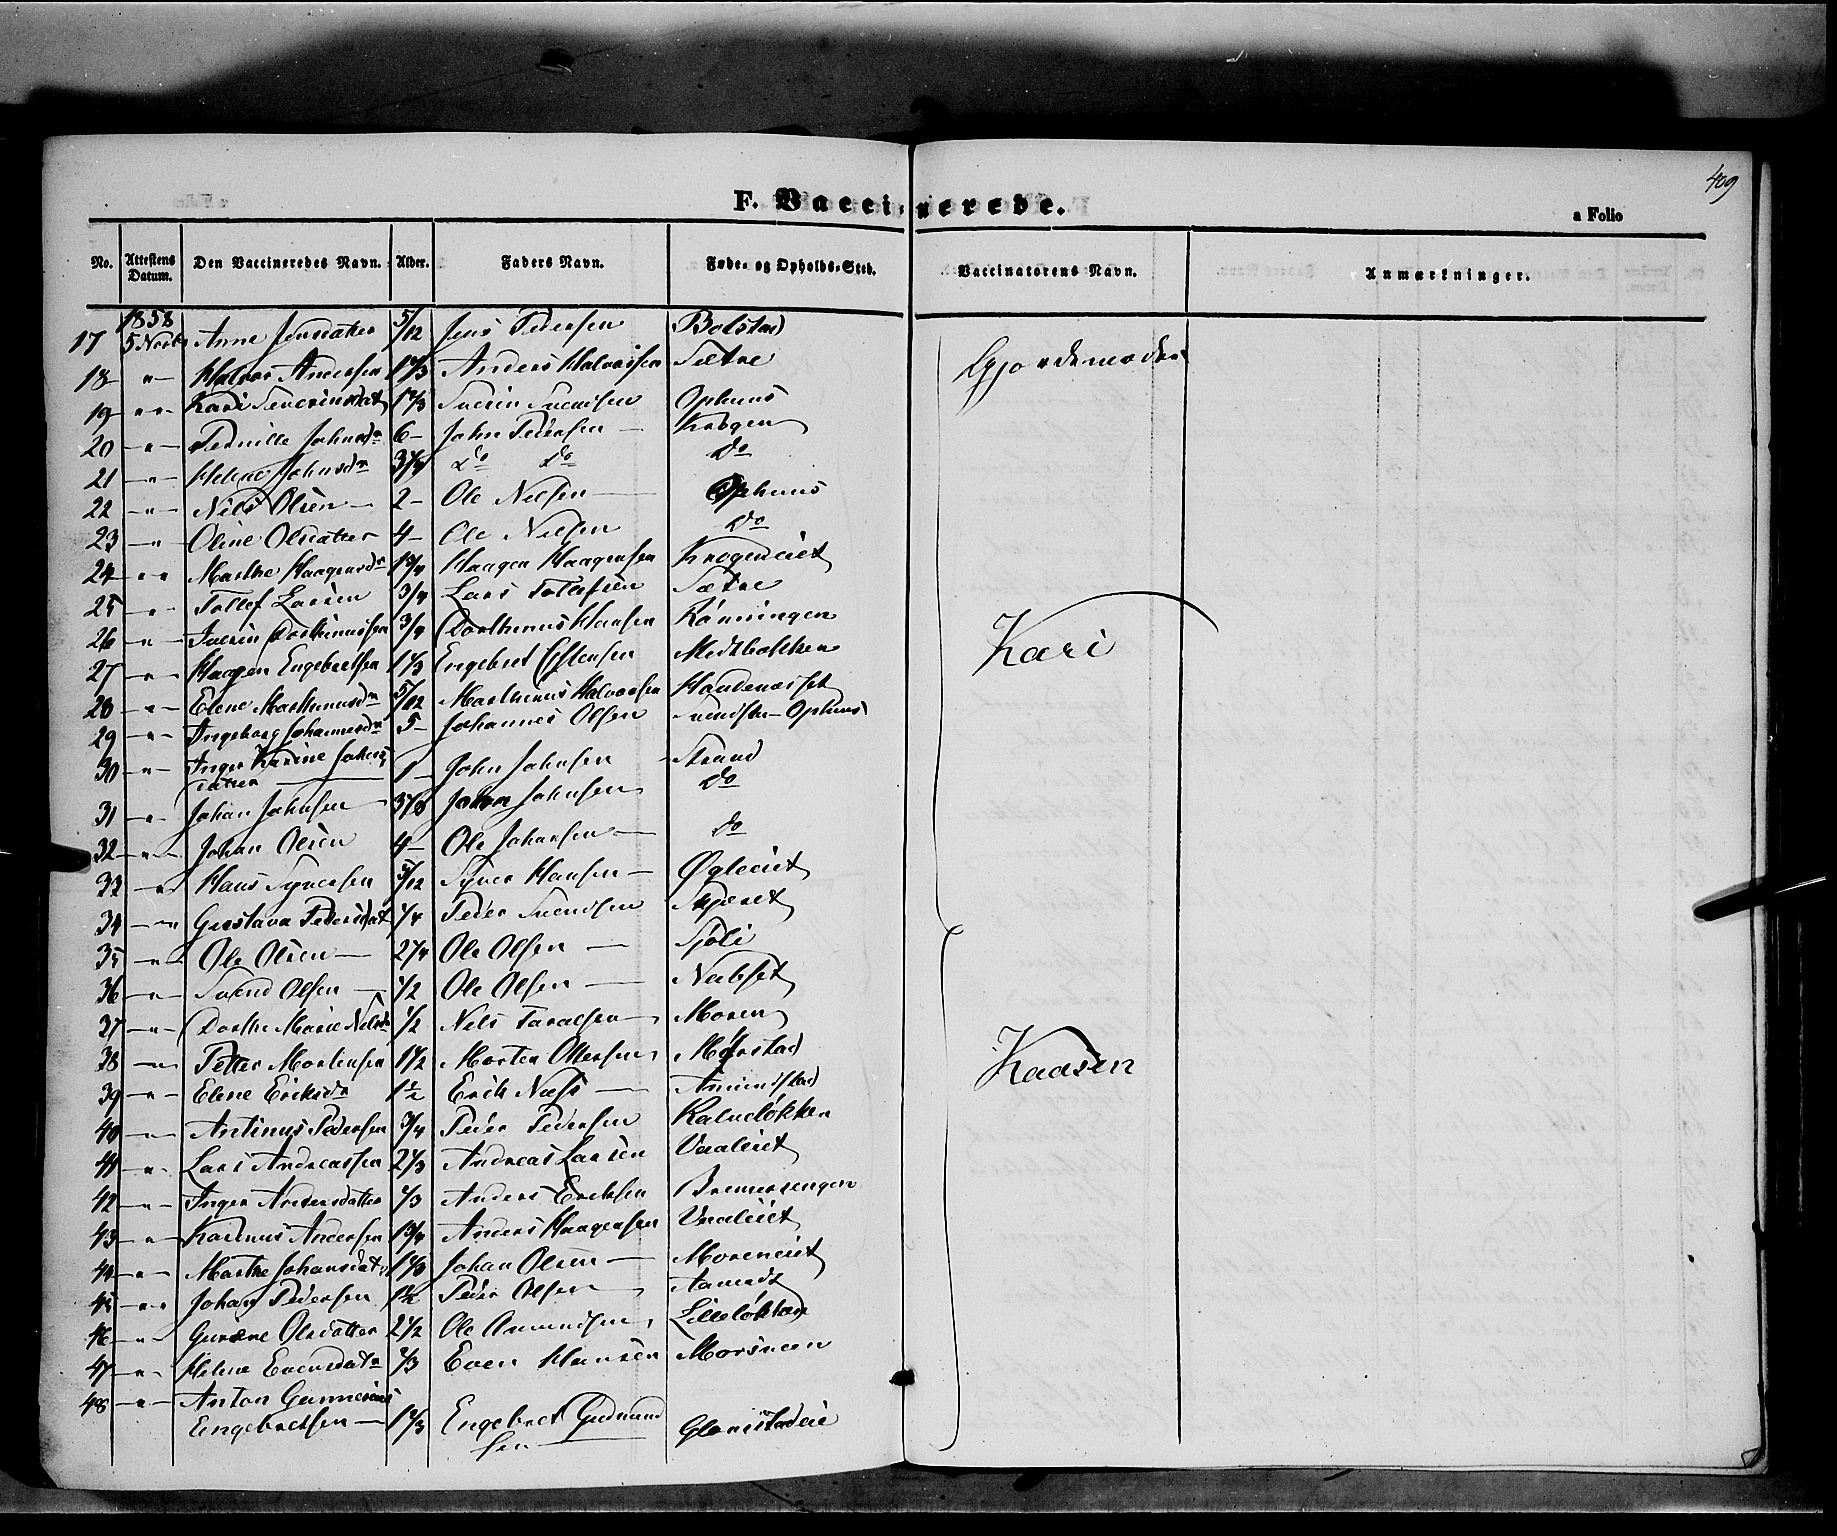 409
F. Vaccinerede.
a Folio
No. Attestens Datum. Den Vaccineredes Navn. Alder. Faders Navn. Føde- og Opholds-Sted. Vaccinatorens Navn. Anmærkninger.
1858
17 5 Novb Anne Jensdatter 5/12 Jens Pedersen Bolstad
18 " Halvor Andersen Anders Halvorsen Sætre
19 " Kari Sverinsdat Sverin Svendsen Ophuus
20 " Pernille Johnsdr 6 John Pedersen Krogen
21 " Helene Johnsdr 3 1/4 do do do
22 " Nils Olsen 2 Ole Nelsen Ophuus
23 " Oline Olsdatter 4 Ole Nilsen do
24 " Marthe Haagensdr Haagen Haagensen Krogeneiet
25 " Tollef Larsen 3/4 Lars Tollefsen Sætre
26 " Iverin Dorthinussen 3/4 Dorthinus Hansen Rønningen
27 " Haagen Engebretsen 1 1/3 Engebret Estensen
28 " Elene Marthinusdr 5/12 Marthinus Halvorsen
29 " Ingeborg Johannesdr 5 Johannes Olsen Ophuus
30 " Inger Karine Johns
datter 1 John Johnsen Strand
31 " Johan Johnsen John Johnsen do
32 " Johan Olsen 4 Ole Johansen do
33 " Hans Syversen 5/12 Syver Hansen Øgleeiet
34 " Gustava Pedersdat 1/4 Peder Svendsen Skjæret
35 " Ole Olsen 2 1/4 Ole Olsen Sjøli
36 " Svend Olsen 1/2 Ole Olsen Nabset
37 " Dorthe Marie Nilsdr 1/2 Nels Taralsen Moren
38 " Petter Mortensen 1 1/2 Morten Ottersen Mørstad
39 " Elene Eriksdr 1 1/2 Erik Næss Amundstad
40 " Antinus Pedersen 3/4 Peder Pedersen Kalveløkken
41 " Lars Andreassen 2 1/3 Andreas Larsen Vaaleiet
42 " Inger Andersdatter Anders Eriksen Bremersengen
43 " Karinus Andersen 1 3/4 Anders Haagensen Vaaleiet
44 " Marthe Johansdatr Johan Olsen Moreneiet
45 " Johan Pedersen 1 1/2 Peder Olsen Aamodt
46 " Olsdatter 2 1/2 Ole Amundsen Lilleløkken
47 " Helene Evensdatr Even Hansen
48 " Anton Gunnerius
Engebretsen Engebret Gudmund
sen Glomstadeie
Gjordemoder
Kari
Kaasen